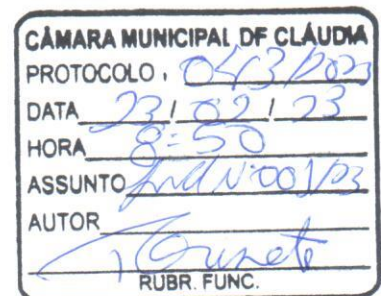 CÂMARA MUNICIPAL DE CLÁUDIA
PROTOCOLO: 043/2023
DATA 23/02/23
HORA 8:50
ASSUNTO Nº 001/23
AUTOR
RUBR. FUNC.